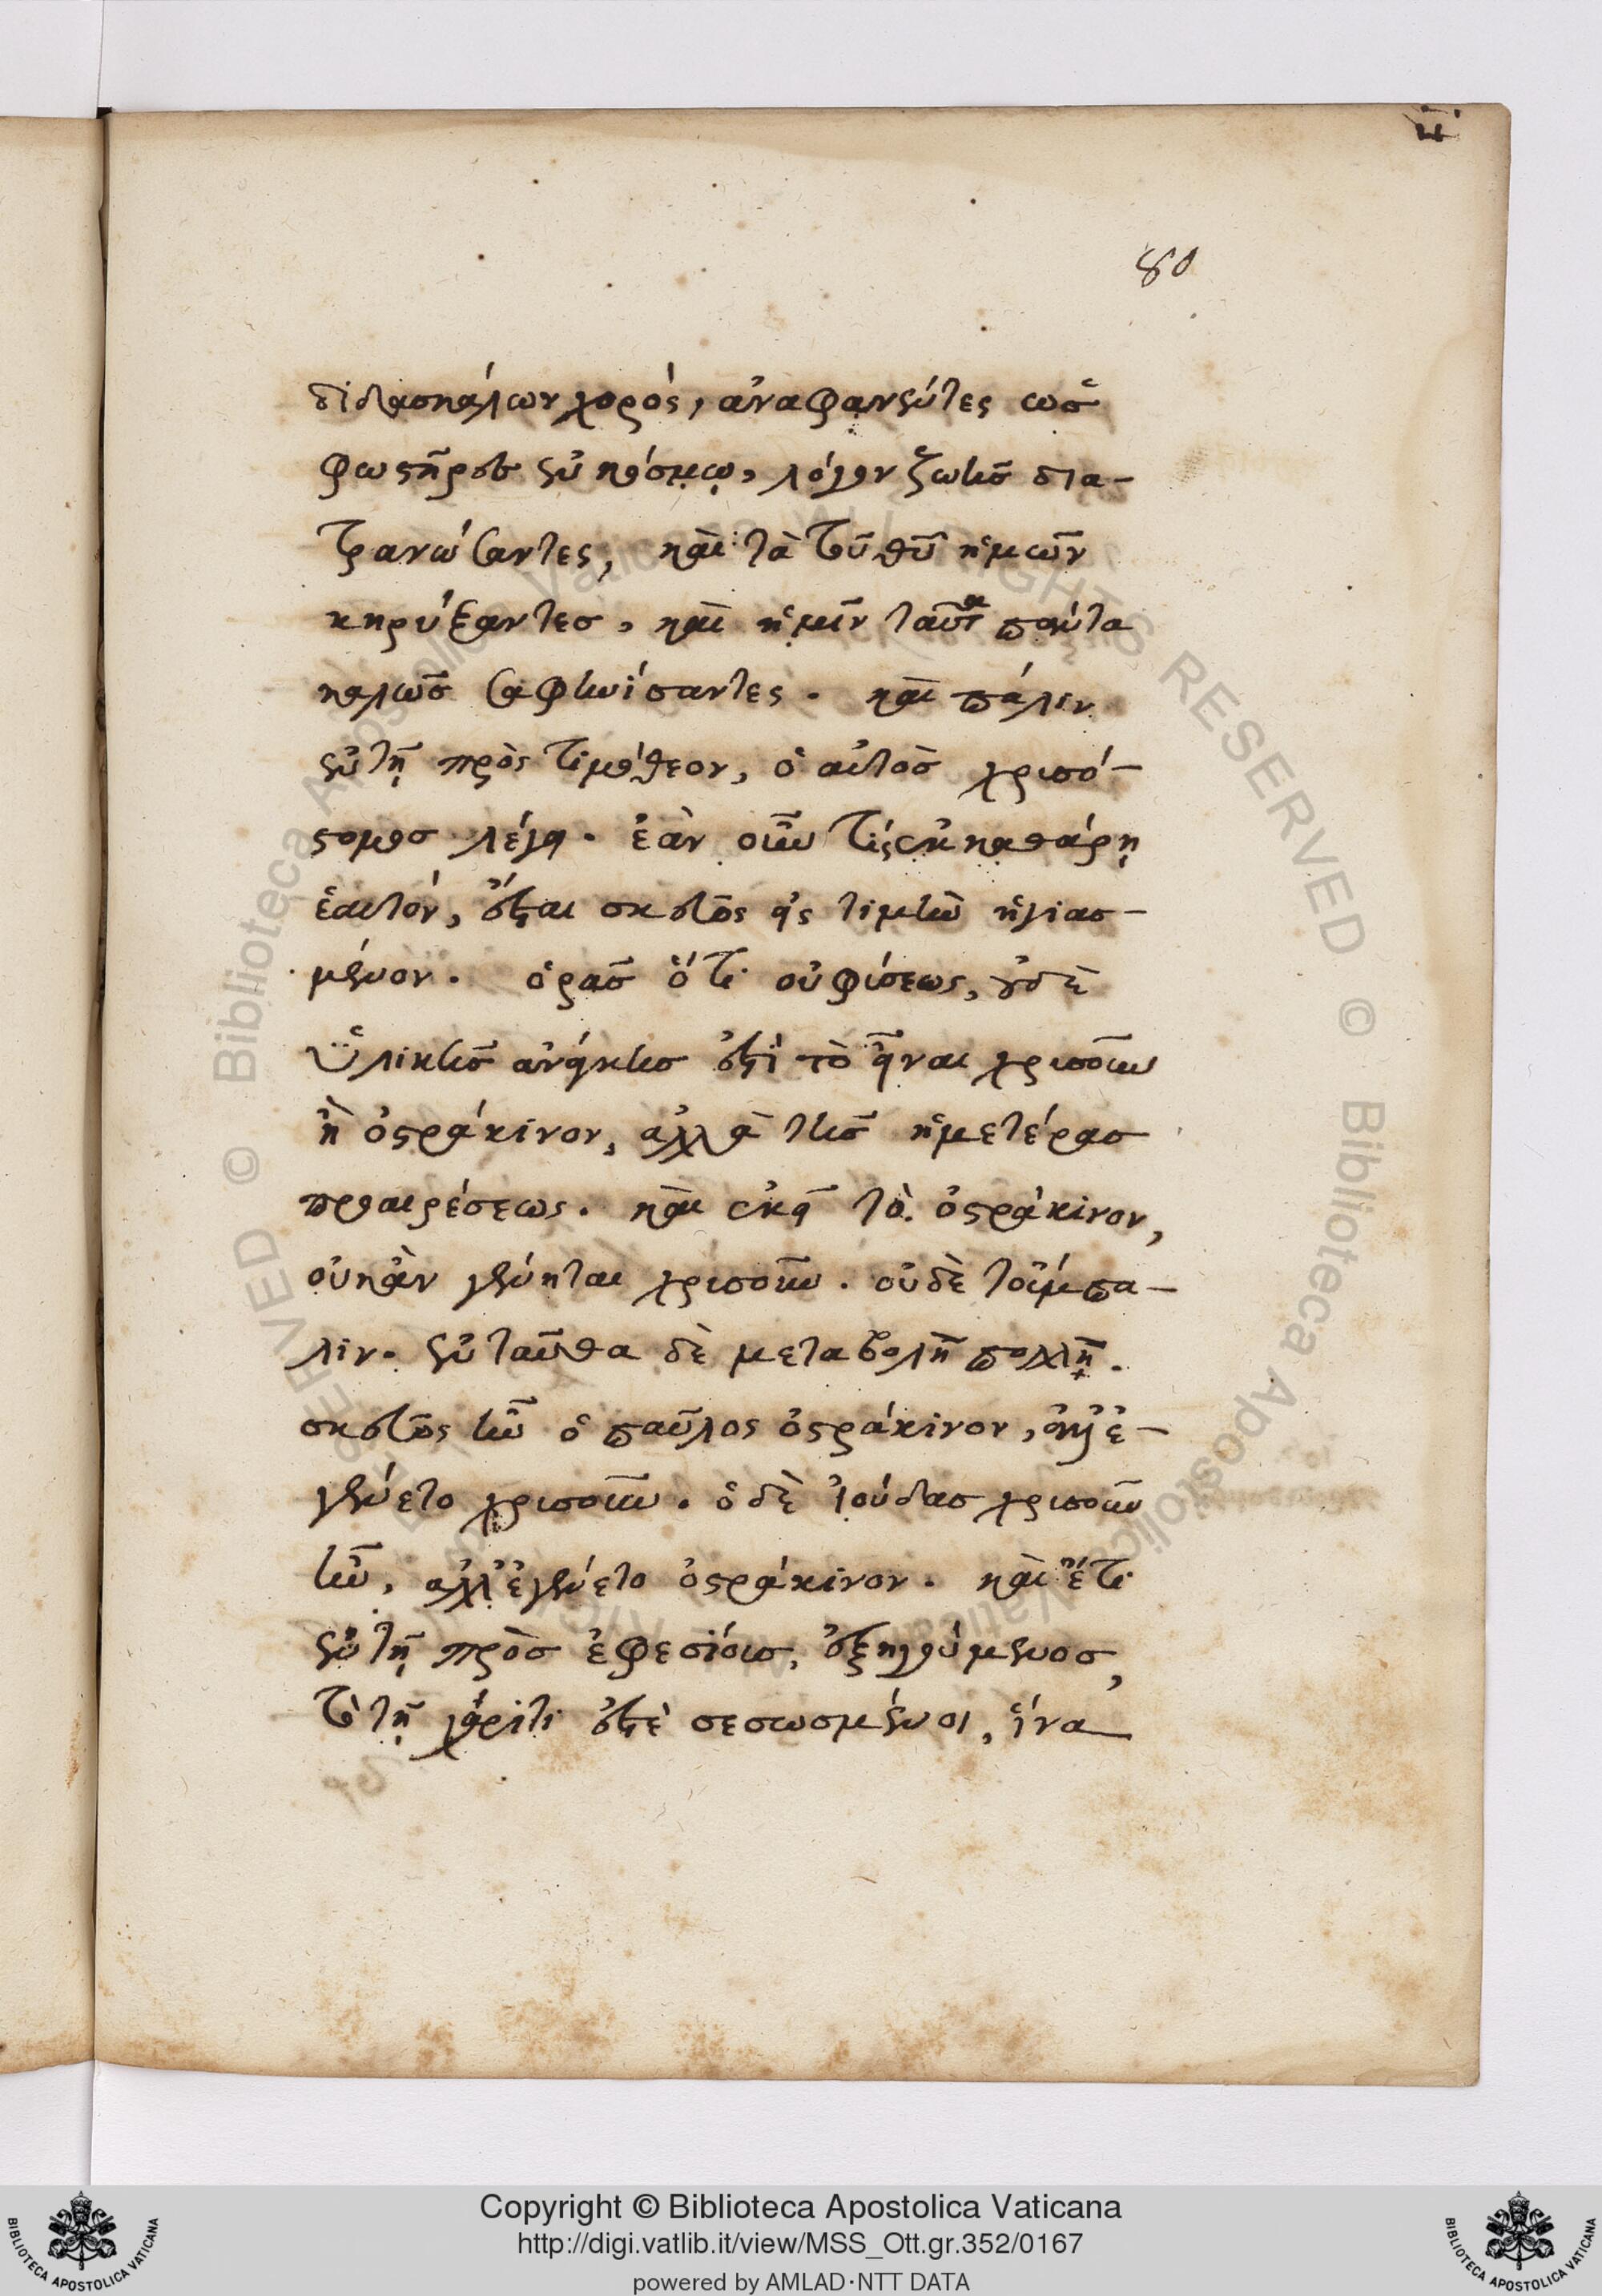 π̅
80
διδασκάλων χορός, ἀναφανέντες ὡς
φωστῆρες ἐν κόσμῳ, λόγον ζωῆς δια-
τρανώσαντες, καὶ τὰ τοῦ θῦ ἡμῶν
κηρύξαντες, καὶ ἡμῖν ταῦτα πάντα
καλῶς σαφηνίσαντες. καὶ πάλιν
ἐν τῇ πρὸς τιμόθεον, ὁ αὐτὸς χρυσό-
στομος λέγει. ἐὰν οὖν τίς ἐκκαθάρῃ
ἑαυτόν, ἔσται σκεῦος εἰς τιμὴν ἡγιασ-
μένον. ὁρᾶς ὅτι οὐ φύσεως, οὐδὲ
ὑλικῆς ἀνάγκης ἐστὶ τὸ εἶναι χρυσοῦν
ἢ ὀστράκινον, ἀλλὰ τῆς ἡμετέρας
προαιρέσεως. καὶ ἐκεῖ τὸ ὀστράκινον,
οὐκ ἂν γένηται χρυσοῦν. οὐδὲ τοὔμπα-
λιν. ἐνταῦθα δὲ μεταβολὴ πολλῆ.
σκεῦος ἦν ὁ παῦλος ὀστράκινον, ἀλλ' ἐ-
γένετο χρυσοῦν. ὁ δὲ ἰούδας χρυσοῦν
ἦν, ἀλλ' ἐγένετο ὀστράκινον. καὶ ἔτι
ἐν τῇ πρὸς ἐφεσίοις, ἐξηγούμενος,
τὸ τῇ χάριτι ἐστὲ σεσωσμένοι, ἵνα
Copyright © Biblioteca Apostolica Vaticana
http://digi.vatlib.it/view/MSS_Ott.gr.352/0167
powered by AMLAD·NTT DATA
BIBLIOTECA APOSTOLICA VATICANA
BIBLIOTECA APOSTOLICA VATICANA